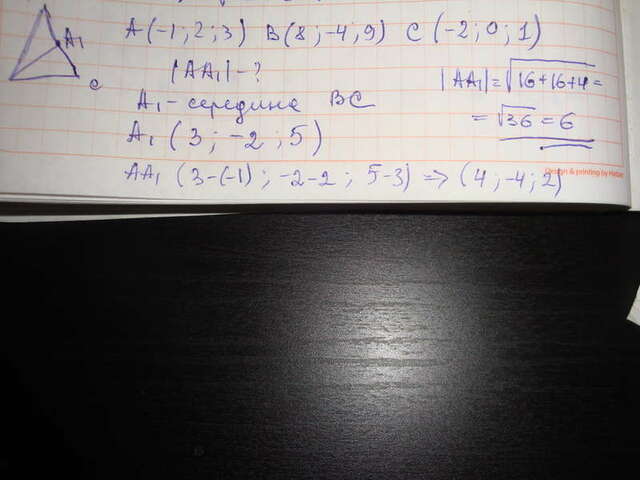 A (-1; 2; 3) B (8; -4; 9) C (-2; 0; 1)
A₁
C
|AA₁| - ?
A₁ - середина BC
A₁ (3; -2; 5)
AA₁ (3-(-1); -2-2; 5-3) => (4; -4; 2)
|AA₁| = √16+16+4 =
= √36 = 6
Design & printing by